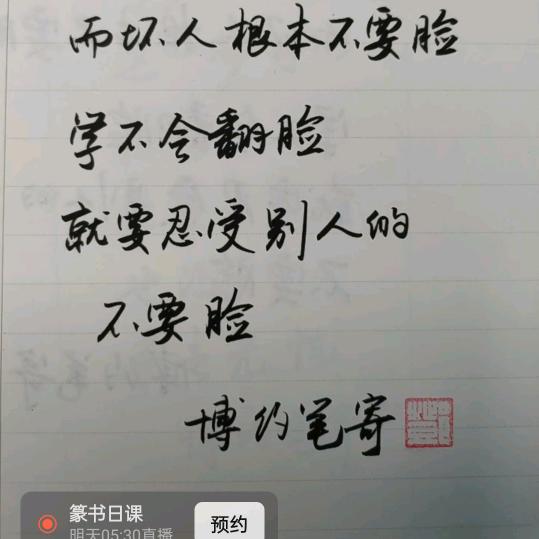 而坏人根本不要脸
学不会翻脸
就要忍受别人的
不要脸
博约笔寄
篆书日课
预约
明天05:30直播